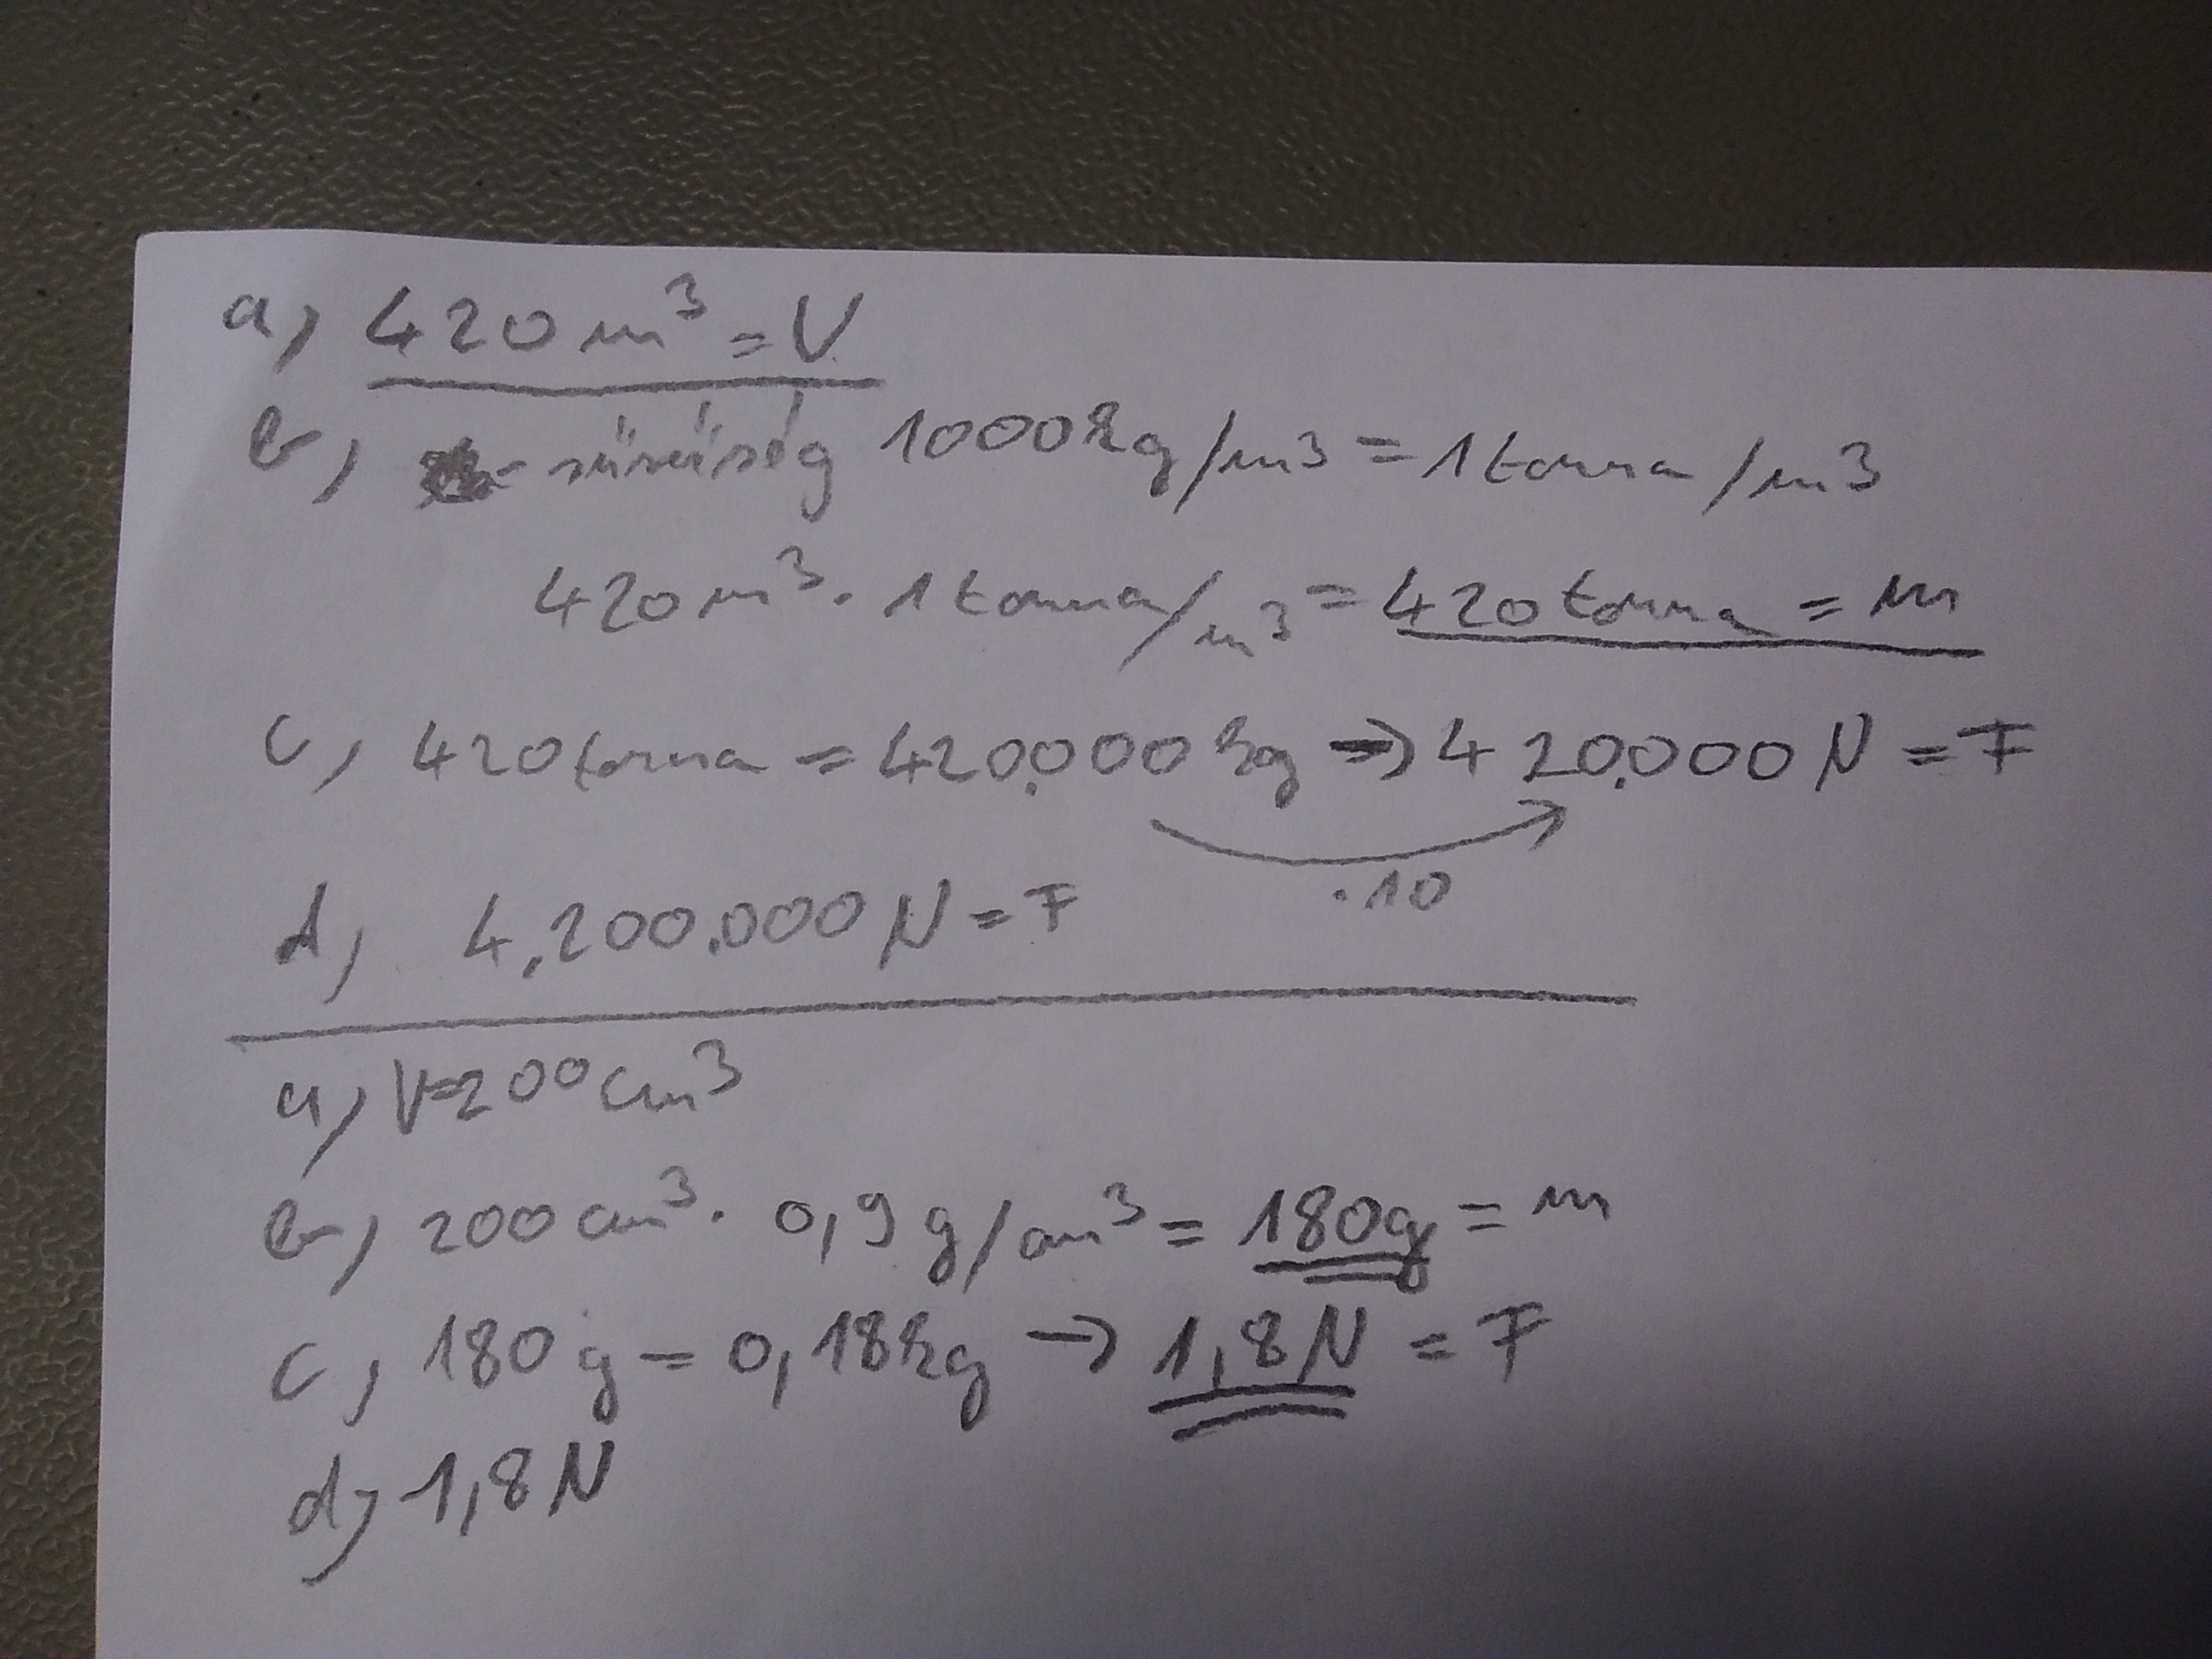 a, 420 m³ = V
b, - sűrűség 1000kg/m3 = 1 tonna/m3
420 m³ · 1 tonna/m3 = 420 tonna = m
c, 420 tonna = 420.000 kg → 4 20.000 N = F
·10
d, 4.200.000 N = F
a, V=200 cm³
b, 200 cm³ · 0,9 g/cm³ = 180g = m
c, 180 g = 0,18kg → 1,8 N = F
d, 1,8 N